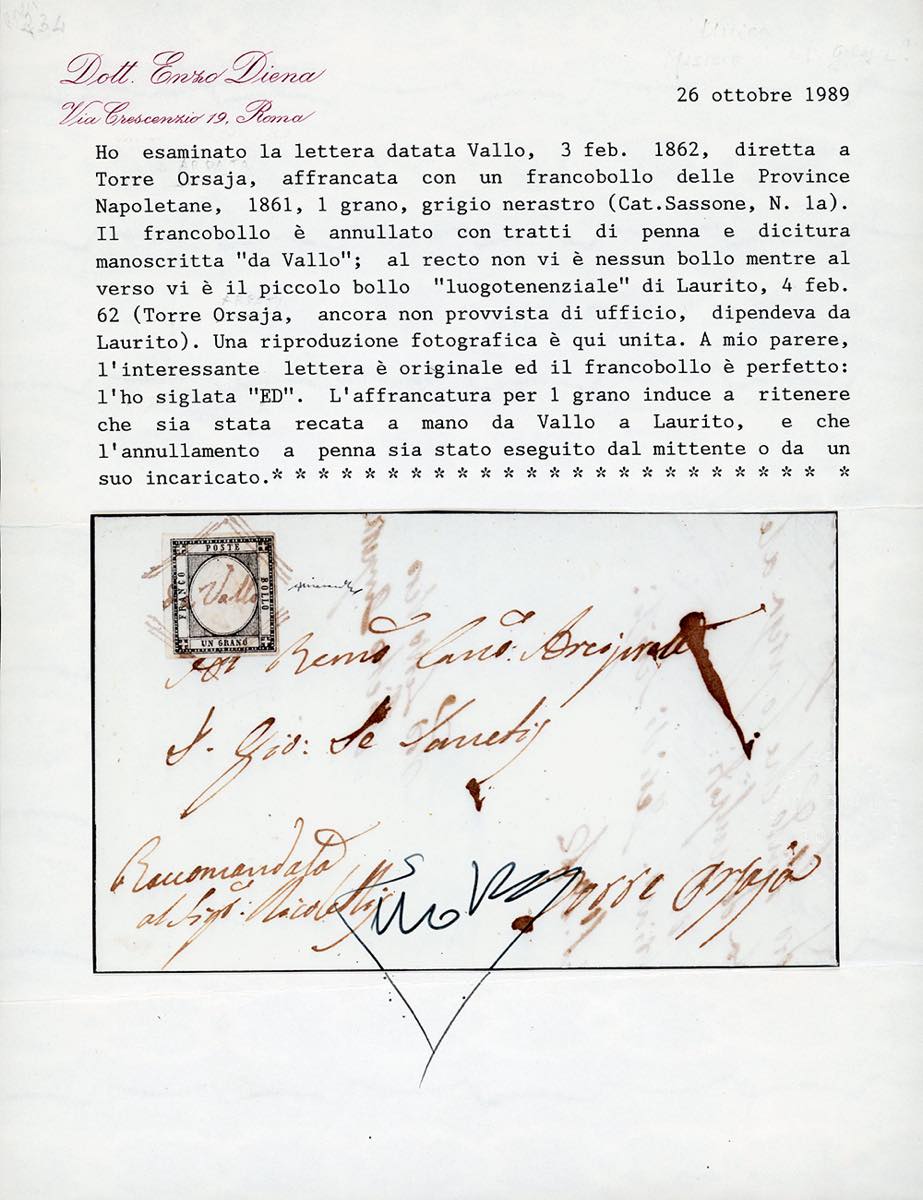 234
Dott. Enzo Diena
Via Crescenzio 19, Roma
26 ottobre 1989
Ho esaminato la lettera datata Vallo, 3 feb. 1862, diretta a
Torre Orsaja, affrancata con un francobollo delle Province
Napoletane, 1861, 1 grano, grigio nerastro (Cat.Sassone, N. 1a).
Il francobollo è annullato con tratti di penna e dicitura
manoscritta "da Vallo"; al recto non vi è nessun bollo mentre al
verso vi è il piccolo bollo "luogotenenziale" di Laurito, 4 feb.
62 (Torre Orsaja, ancora non provvista di ufficio, dipendeva da
Laurito). Una riproduzione fotografica è qui unita. A mio parere,
l'interessante lettera è originale ed il francobollo è perfetto:
l'ho siglata "ED". L'affrancatura per 1 grano induce a ritenere
che sia stata recata a mano da Vallo a Laurito, e che
l'annullamento a penna sia stato eseguito dal mittente o da un
suo incaricato.* * * * * * * * * * * * * * * * * * * * * * * * * *
POSTE
FRANCO
BOLLO
UN GRANO
da Vallo
Al Remo Cano: Arciprete
D. Gio: De
Raccomandata
al Sigr:
Torre Orsaja